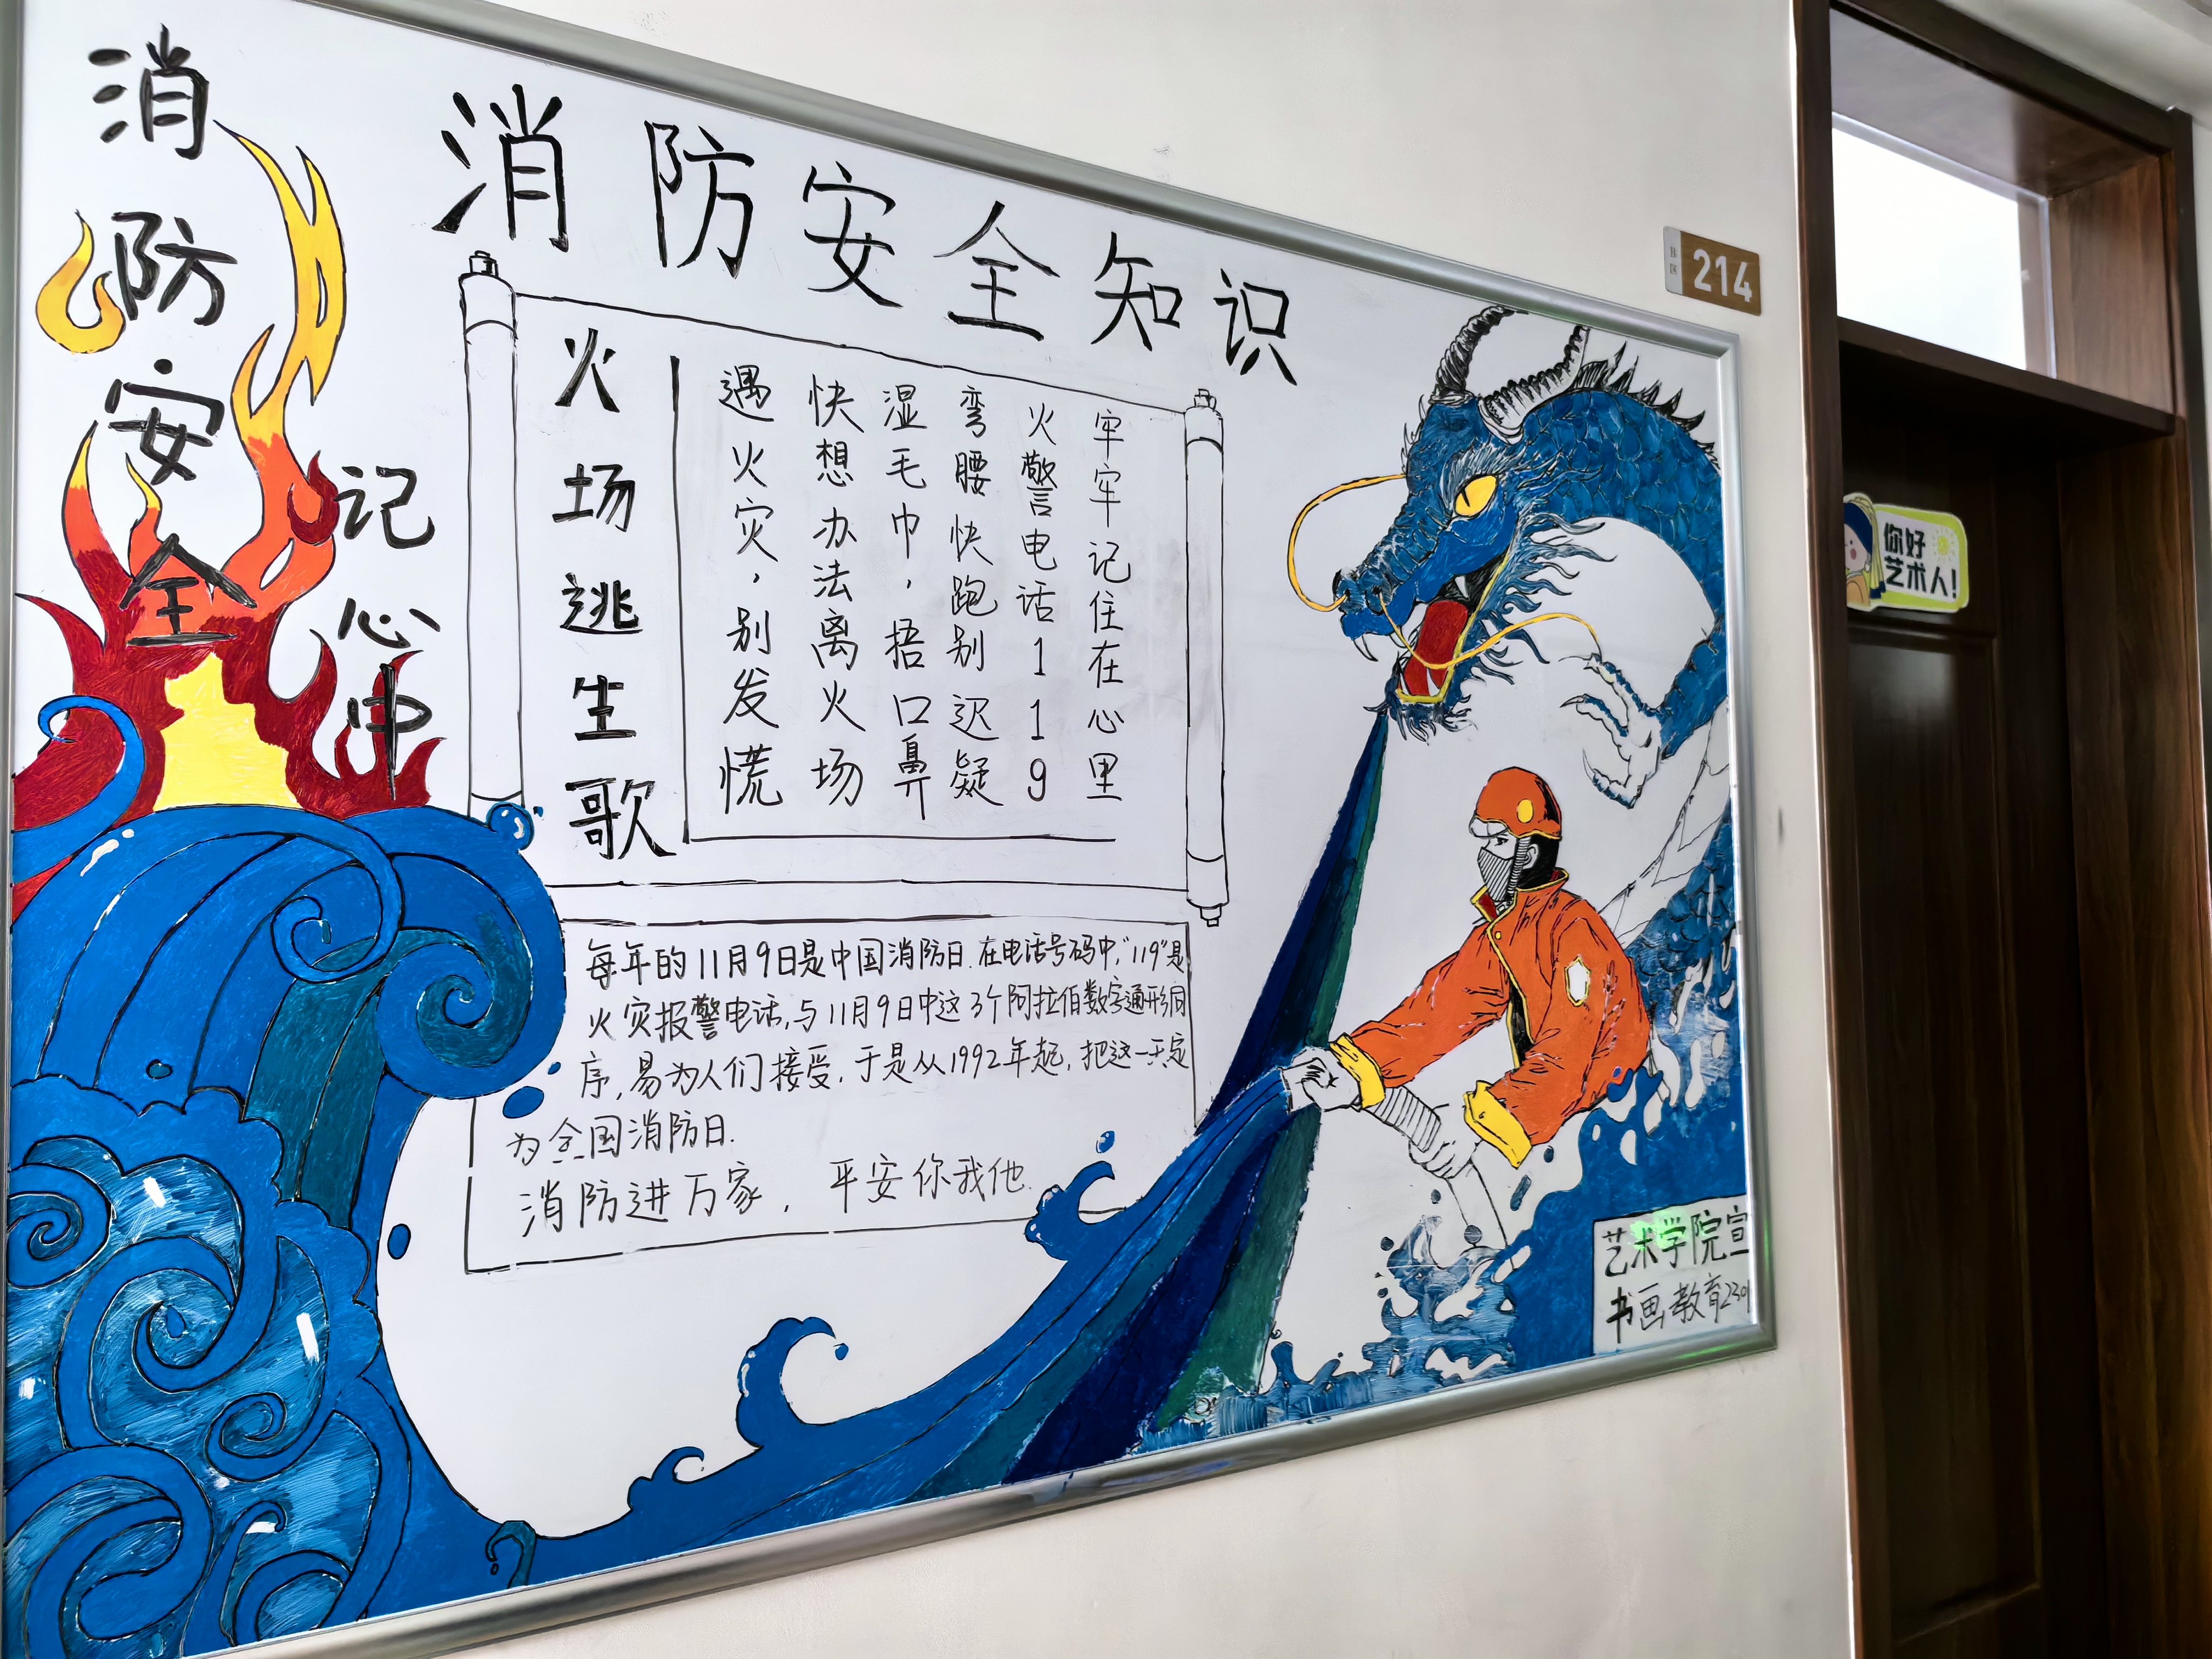 消防安全
记心中
消防安全知识
火场逃生歌
遇火灾，别发慌
快想办法离火场
湿毛巾，捂口鼻
弯腰快跑别迟疑
火警电话119
牢牢记住在心里
每年的11月9日是中国消防日.在电话号码中,“119”是
火灾报警电话,与11月9日中这3个阿拉伯数字通形同
序,易为人们接受,于是从1992年起,把这一天定
为全国消防日.
消防进万家，平安你我他.
艺术学院宣
书画教育2301
B区
214
你好
艺术人!